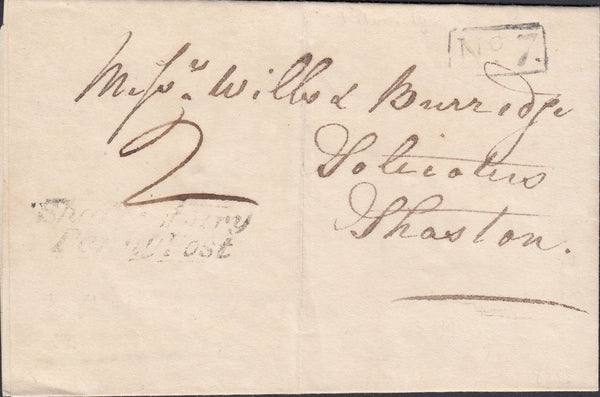 No 7.
Messrs. Wills & Burridge
2
Solicitors
Shaston.
Shaftesbury
Penny Post